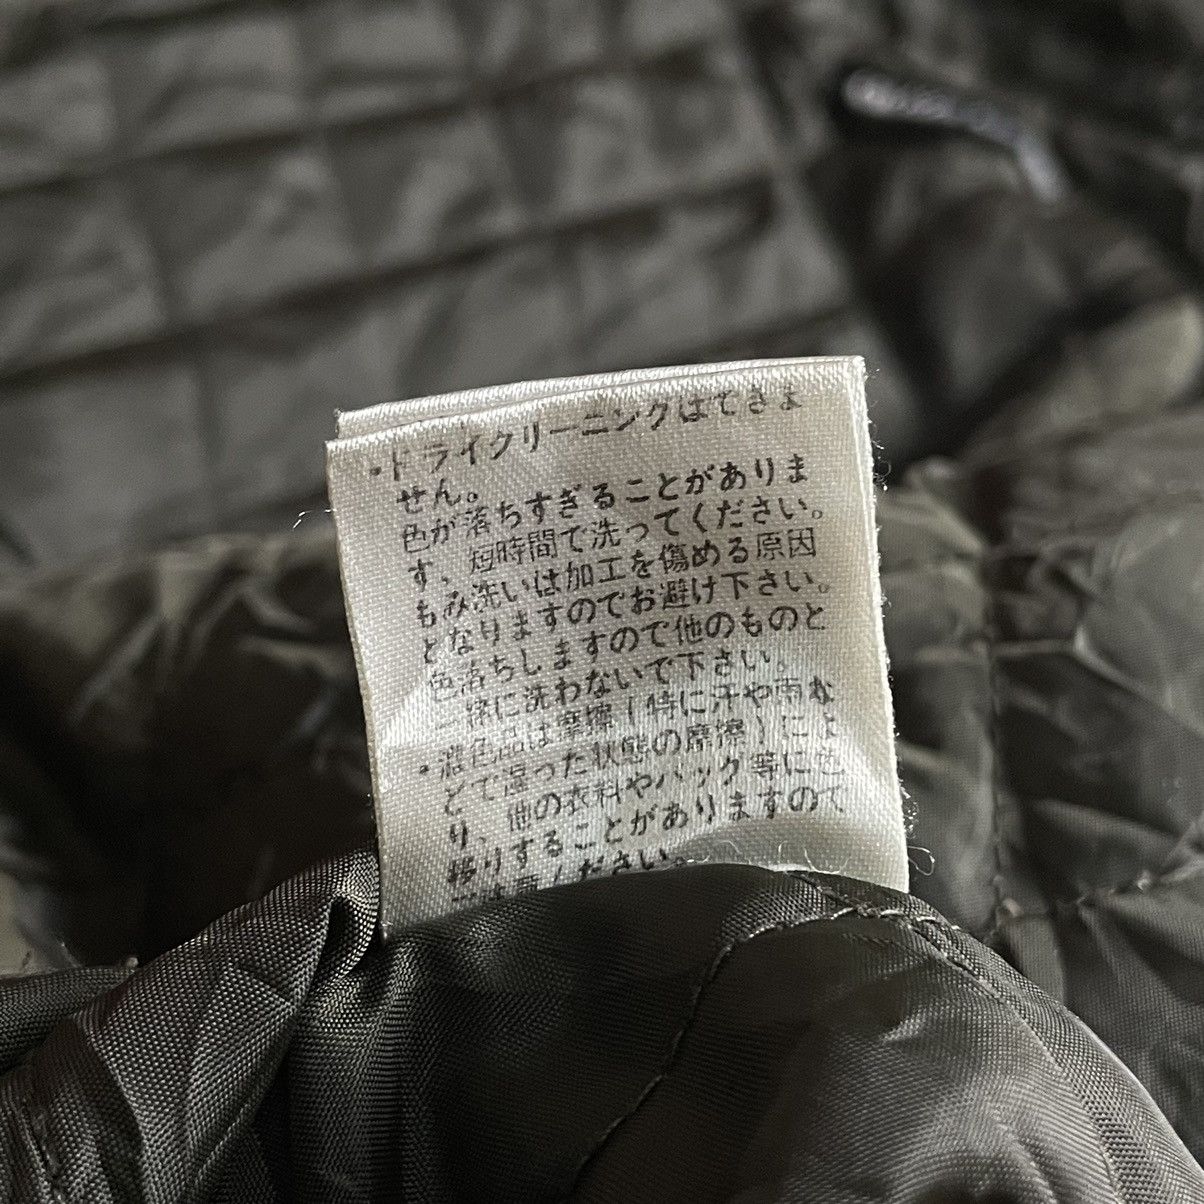 ・ドライクリーニングはできま
せん。
色が落ちすぎることがありま
す、短時間で洗ってください。
もみ洗いは加工を傷める原因
となりますのでお避け下さい。
色落ちしますので他のものと
一緒に洗わないで下さい。
・濃色品は摩擦(特に汗や雨な
どで湿った状態の摩擦)によ
り、他の衣料やバッグ等に色
移りすることがありますので
ください。